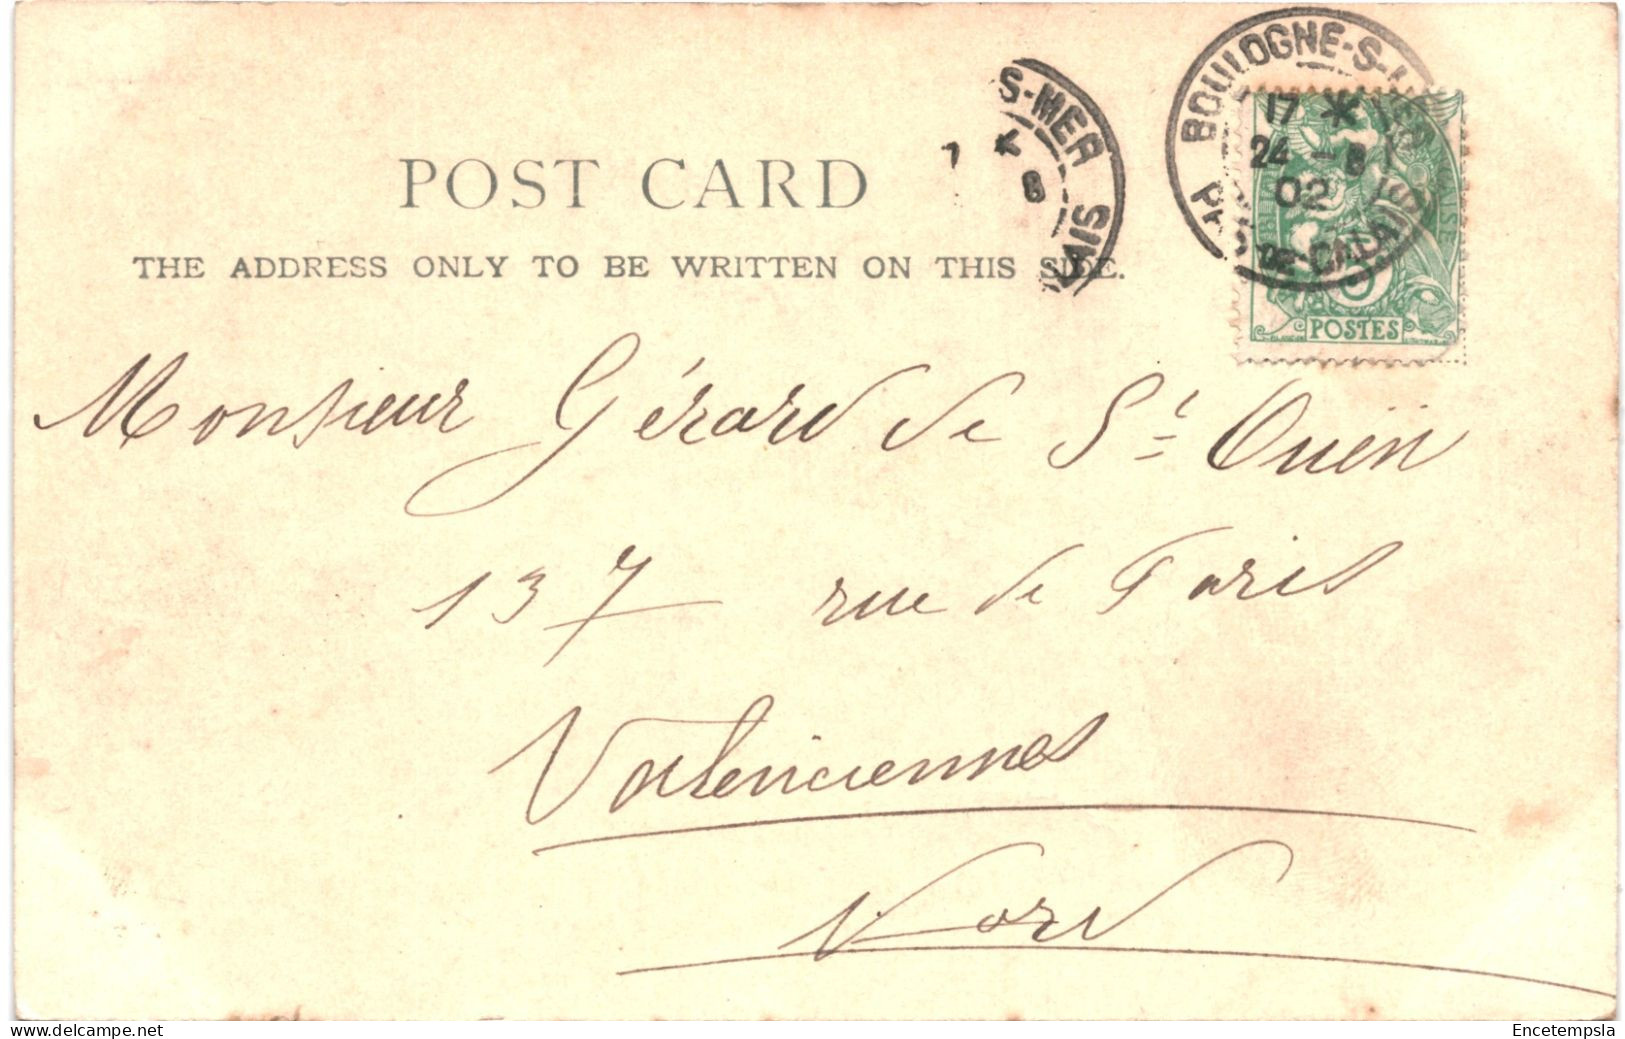 BOULOGNE-S-
17 *
24 - 8
02
CALAIS
S-MER
8
AIS
POST CARD
THE ADDRESS ONLY TO BE WRITTEN ON THIS SIDE.
POSTES
Monsieur Gérard de St Ouën
137 rue de Paris
Valenciennes
Nord
www.delcampe.net
Encetempsla